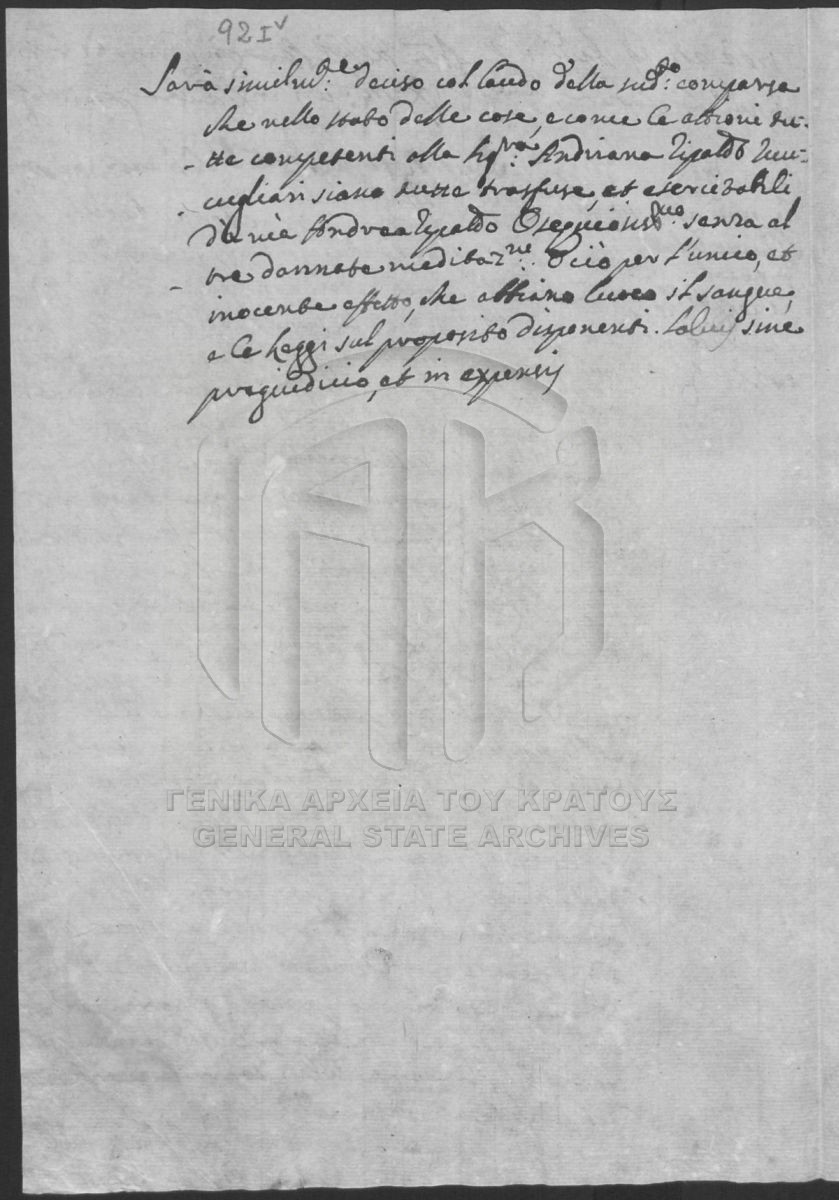 92 I v
Sarà similm:te deciso col laudo della sud:ta comparsa
che nello stato delle cose, e come le azzioni tut-
te competenti alla Sig:ra Andriana Tipaldo
siano tutte trasfuse, et esercitabili
da mè Andrea Tipaldo senza al
tre dannate meditaz:ne. E ciò per l'unico, et
inocente effetto, che abbiano luoco il sangue,
e le Leggi sul proposito disponenti. Salvis sine
pregiudicio, et in expensis
ΓΕΝΙΚΑ ΑΡΧΕΙΑ ΤΟΥ ΚΡΑΤΟΥΣ
GENERAL STATE ARCHIVES